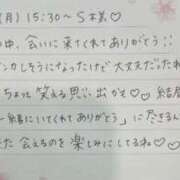 (月) 15:30~ S本美♡
の中、会いに来てくれてありがとう!!
ンかしそうになったけど大丈夫だったね
ちょは笑える思い出かも♡ 結局
一緒にいてくれてありがとう」に尽きるん
た 会えるのを 楽しみにしてるね♡